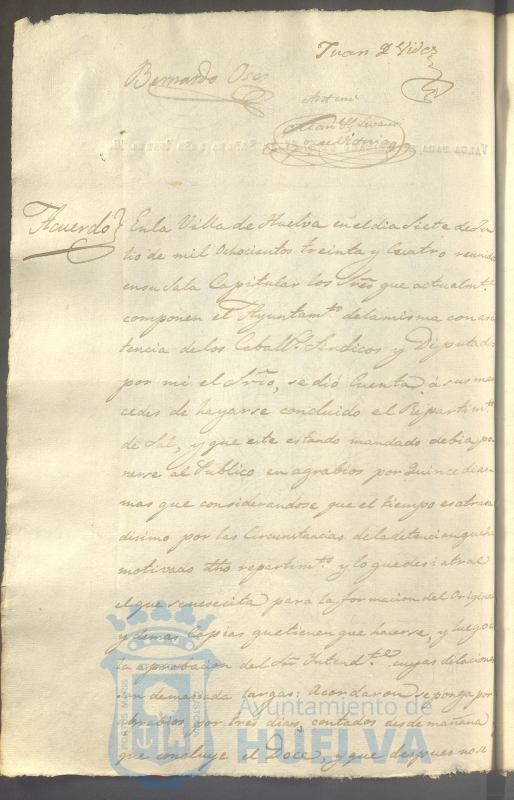 Juan D. Vides
Bernardo Oses
Antemi
Acuerdo } En la Villa de Huelva en el dia Siete de Ju
lio de mil Ochocientos treinta y Cuatro reunidos
en su Sala Capitular los Sres. que actualmte.
componen el Ayuntamto. de la misma con asis
tencia de los Caballs. Sindicos y Diputados
por mi el Srio, se dió Cuenta á sus mer
cedes de hayarse concluido el Repartimto.
de Sal, y que este estando mandado debia po
nerse al Publico en agrabios por Quince dias
mas que considerandose que el tiempo es atrasa
disimo por las Circunstancias de la detencion que ha
motivado dho repartimto. y lo que
el que se nesecita para la formacion del Original
y demas Copias que tienen que hacerse, y luego a
la aprobacion del Sr. Intendte. cuyas dilaciones
son demasiada largas: Acordaron se ponga por
agrabios por tres dias, contados desde mañana
que concluye el Doce, y que despues no se
Ayuntamiento de
HUELVA